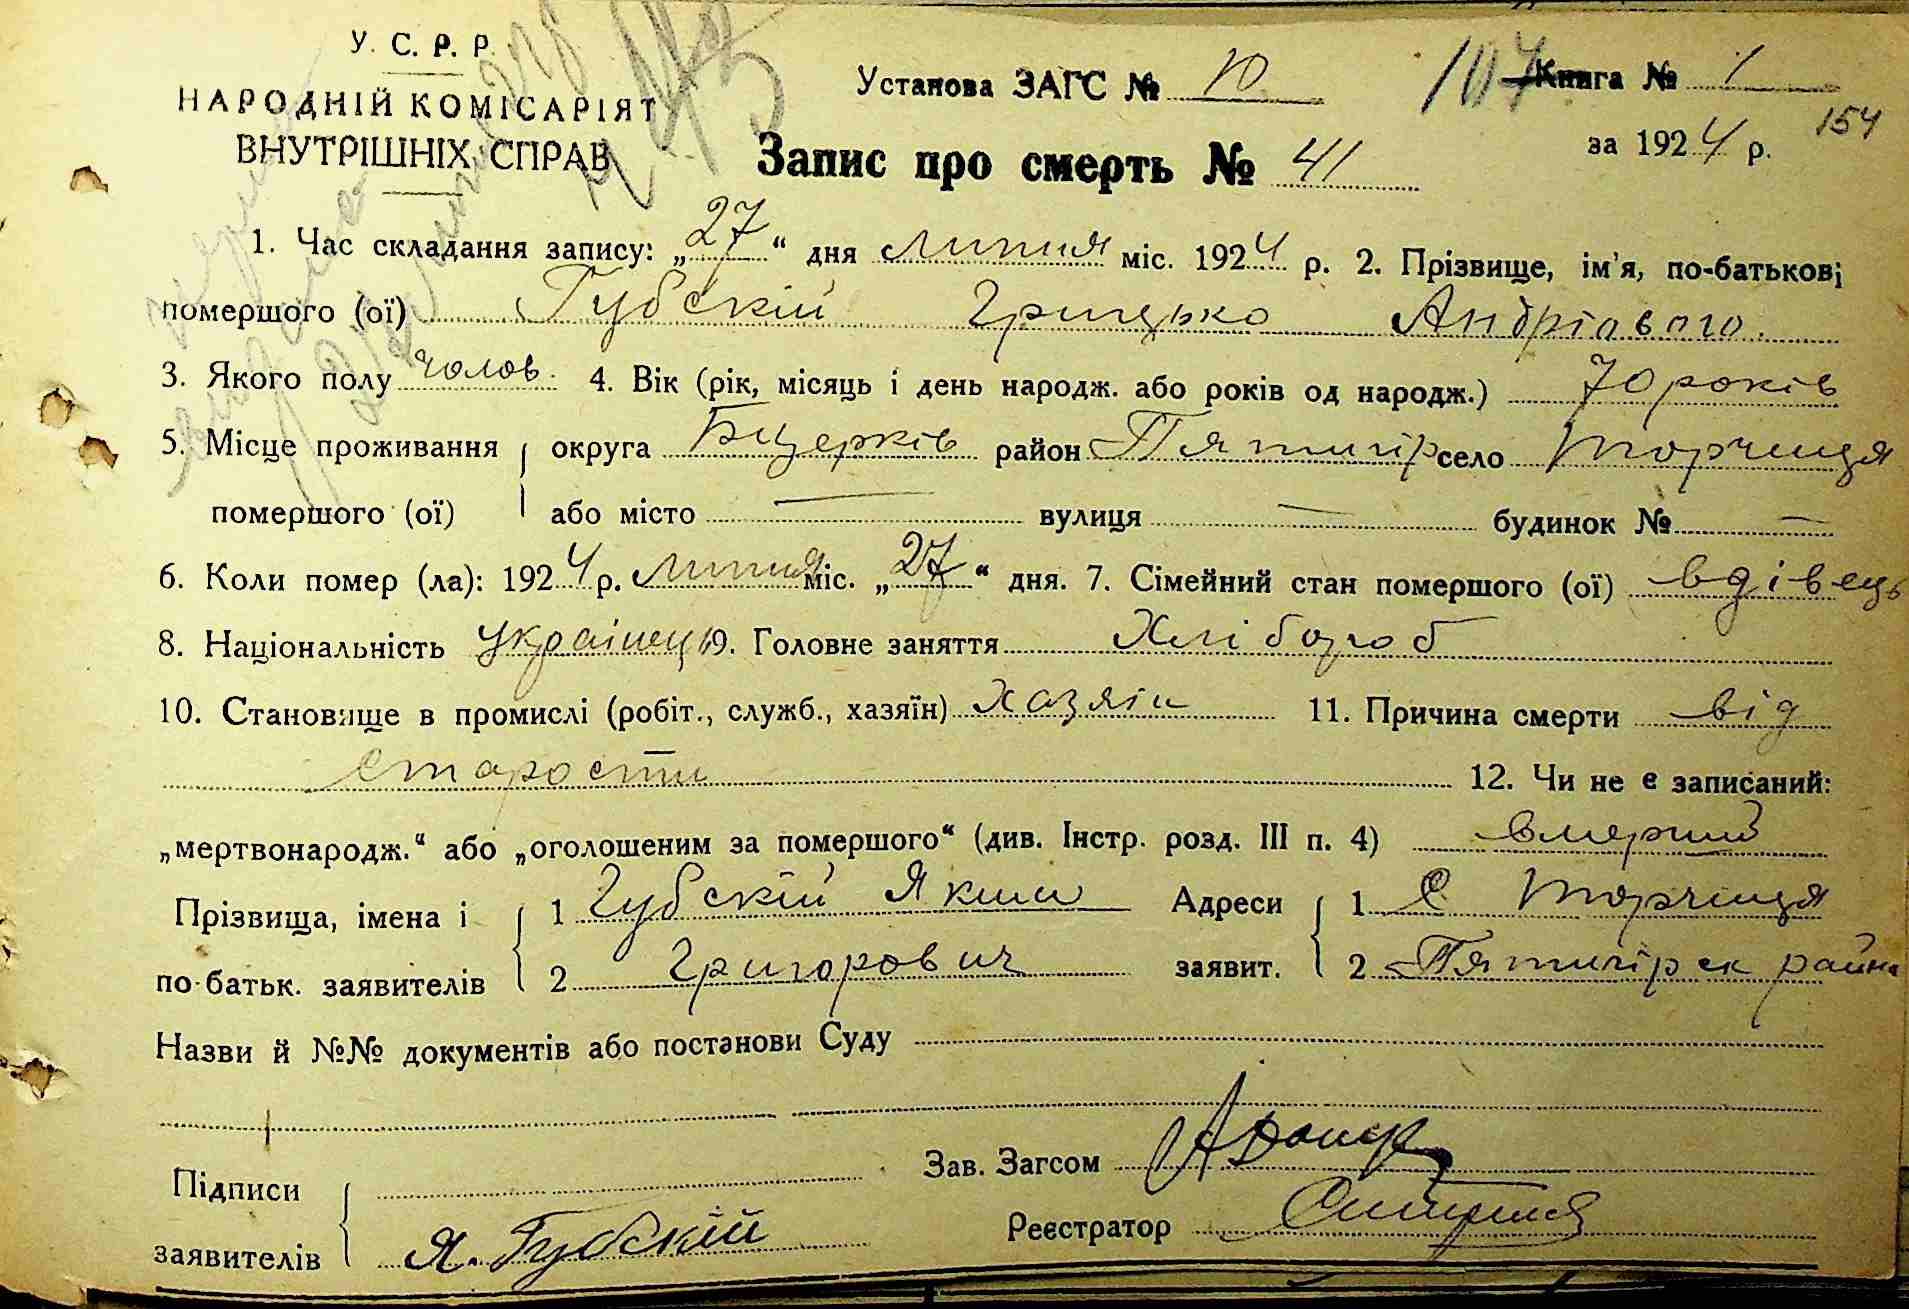 У. С. Р. Р.
НАРОДНІЙ КОМІСАРІЯТ
ВНУТРІШНІХ СПРАВ
Установа ЗАГС № 10
107 Книга № 1
154
за 1924 р.
Запис про смерть № 41
1. Час складання запису: „27“ дня липня міс. 1924 р. 2. Прізвище, ім'я, по-батькові
помершого (ої) Губскій Грицько Андріѣвого
3. Якого полу чолов. 4. Вік (рік, місяць і день народж. або років од народж.) 70 років
5. Місце проживання округа Бцерків район Пятигір село Торчиця
помершого (ої) або місто — вулиця — будинок № —
6. Коли помер (ла): 1924 р. липня міс. „27“ дня. 7. Сімейний стан помершого (ої) вдівець
8. Національність українець 9. Головне заняття Хлібороб
10. Становище в промислі (робіт., служб., хазяїн) Хазяін 11. Причина смерти від
старости 12. Чи не є записаний:
„мертвонародж.“ або „оголошеним за помершого“ (див. Інстр. розд. III п. 4) вмерший
Прізвища, імена і 1 Губскій Яким Адреси 1 С Торчиця
по-батьк. заявителів 2 Григорович заявит. 2 Пятигірск район
Назви й №№ документів або постанови Суду
Підписи Зав. Загсом
заявителів Я. Губскій Реєстратор